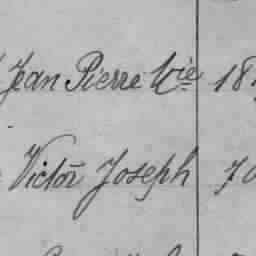 Jean Pierre Vie 18
Victor Joseph 70